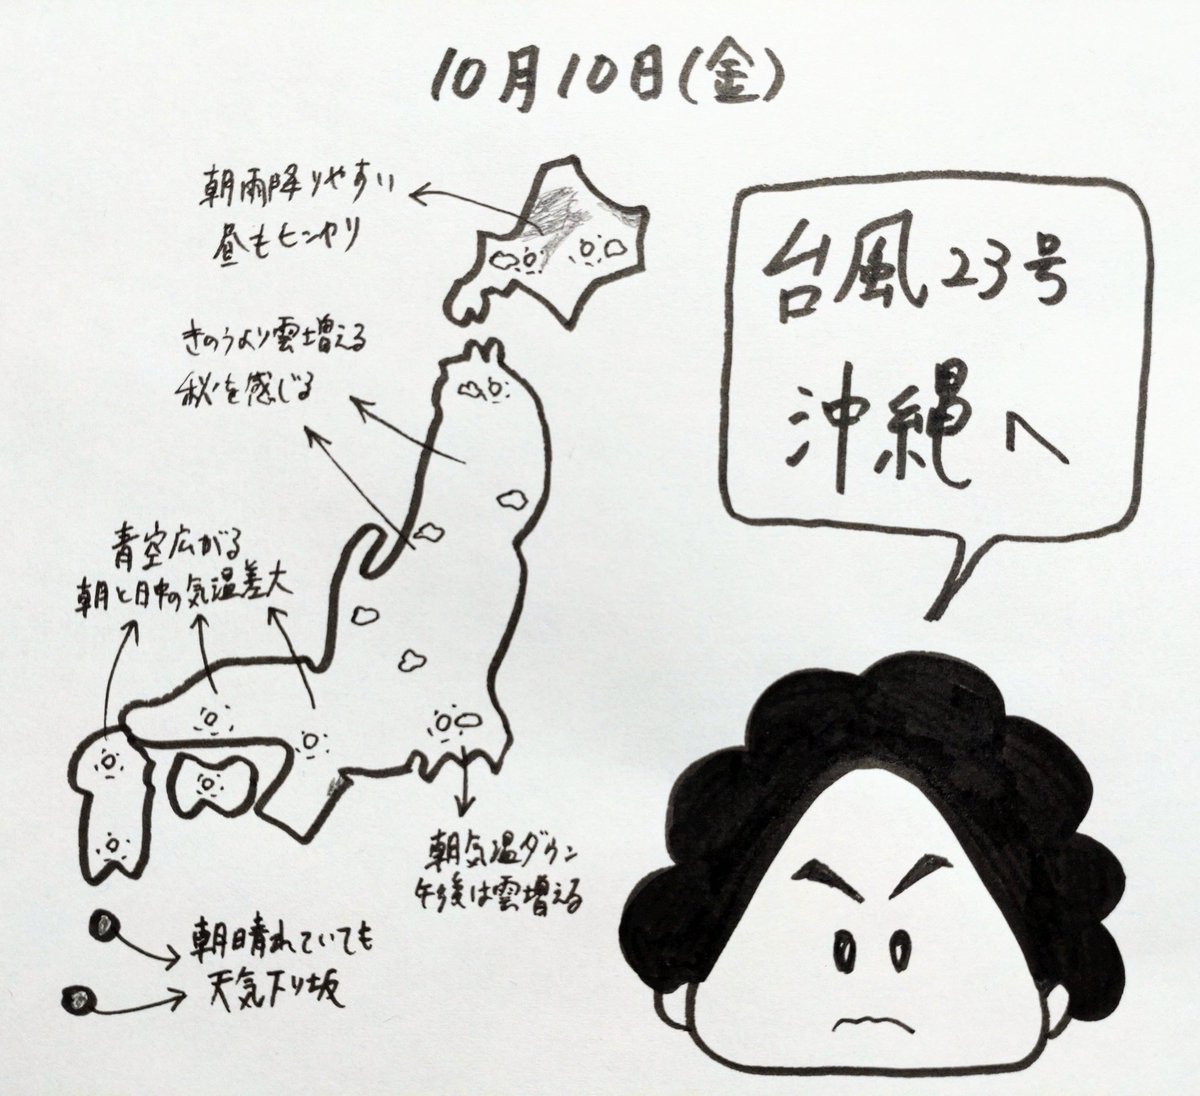 10月10日(金)
朝雨降りやすい
昼もヒンヤリ
台風23号
沖縄へ
きのうより雲増える
秋を感じる
青空広がる
朝と日中の気温差大
朝気温ダウン
午後は雲増える
朝晴れていても
天気下り坂